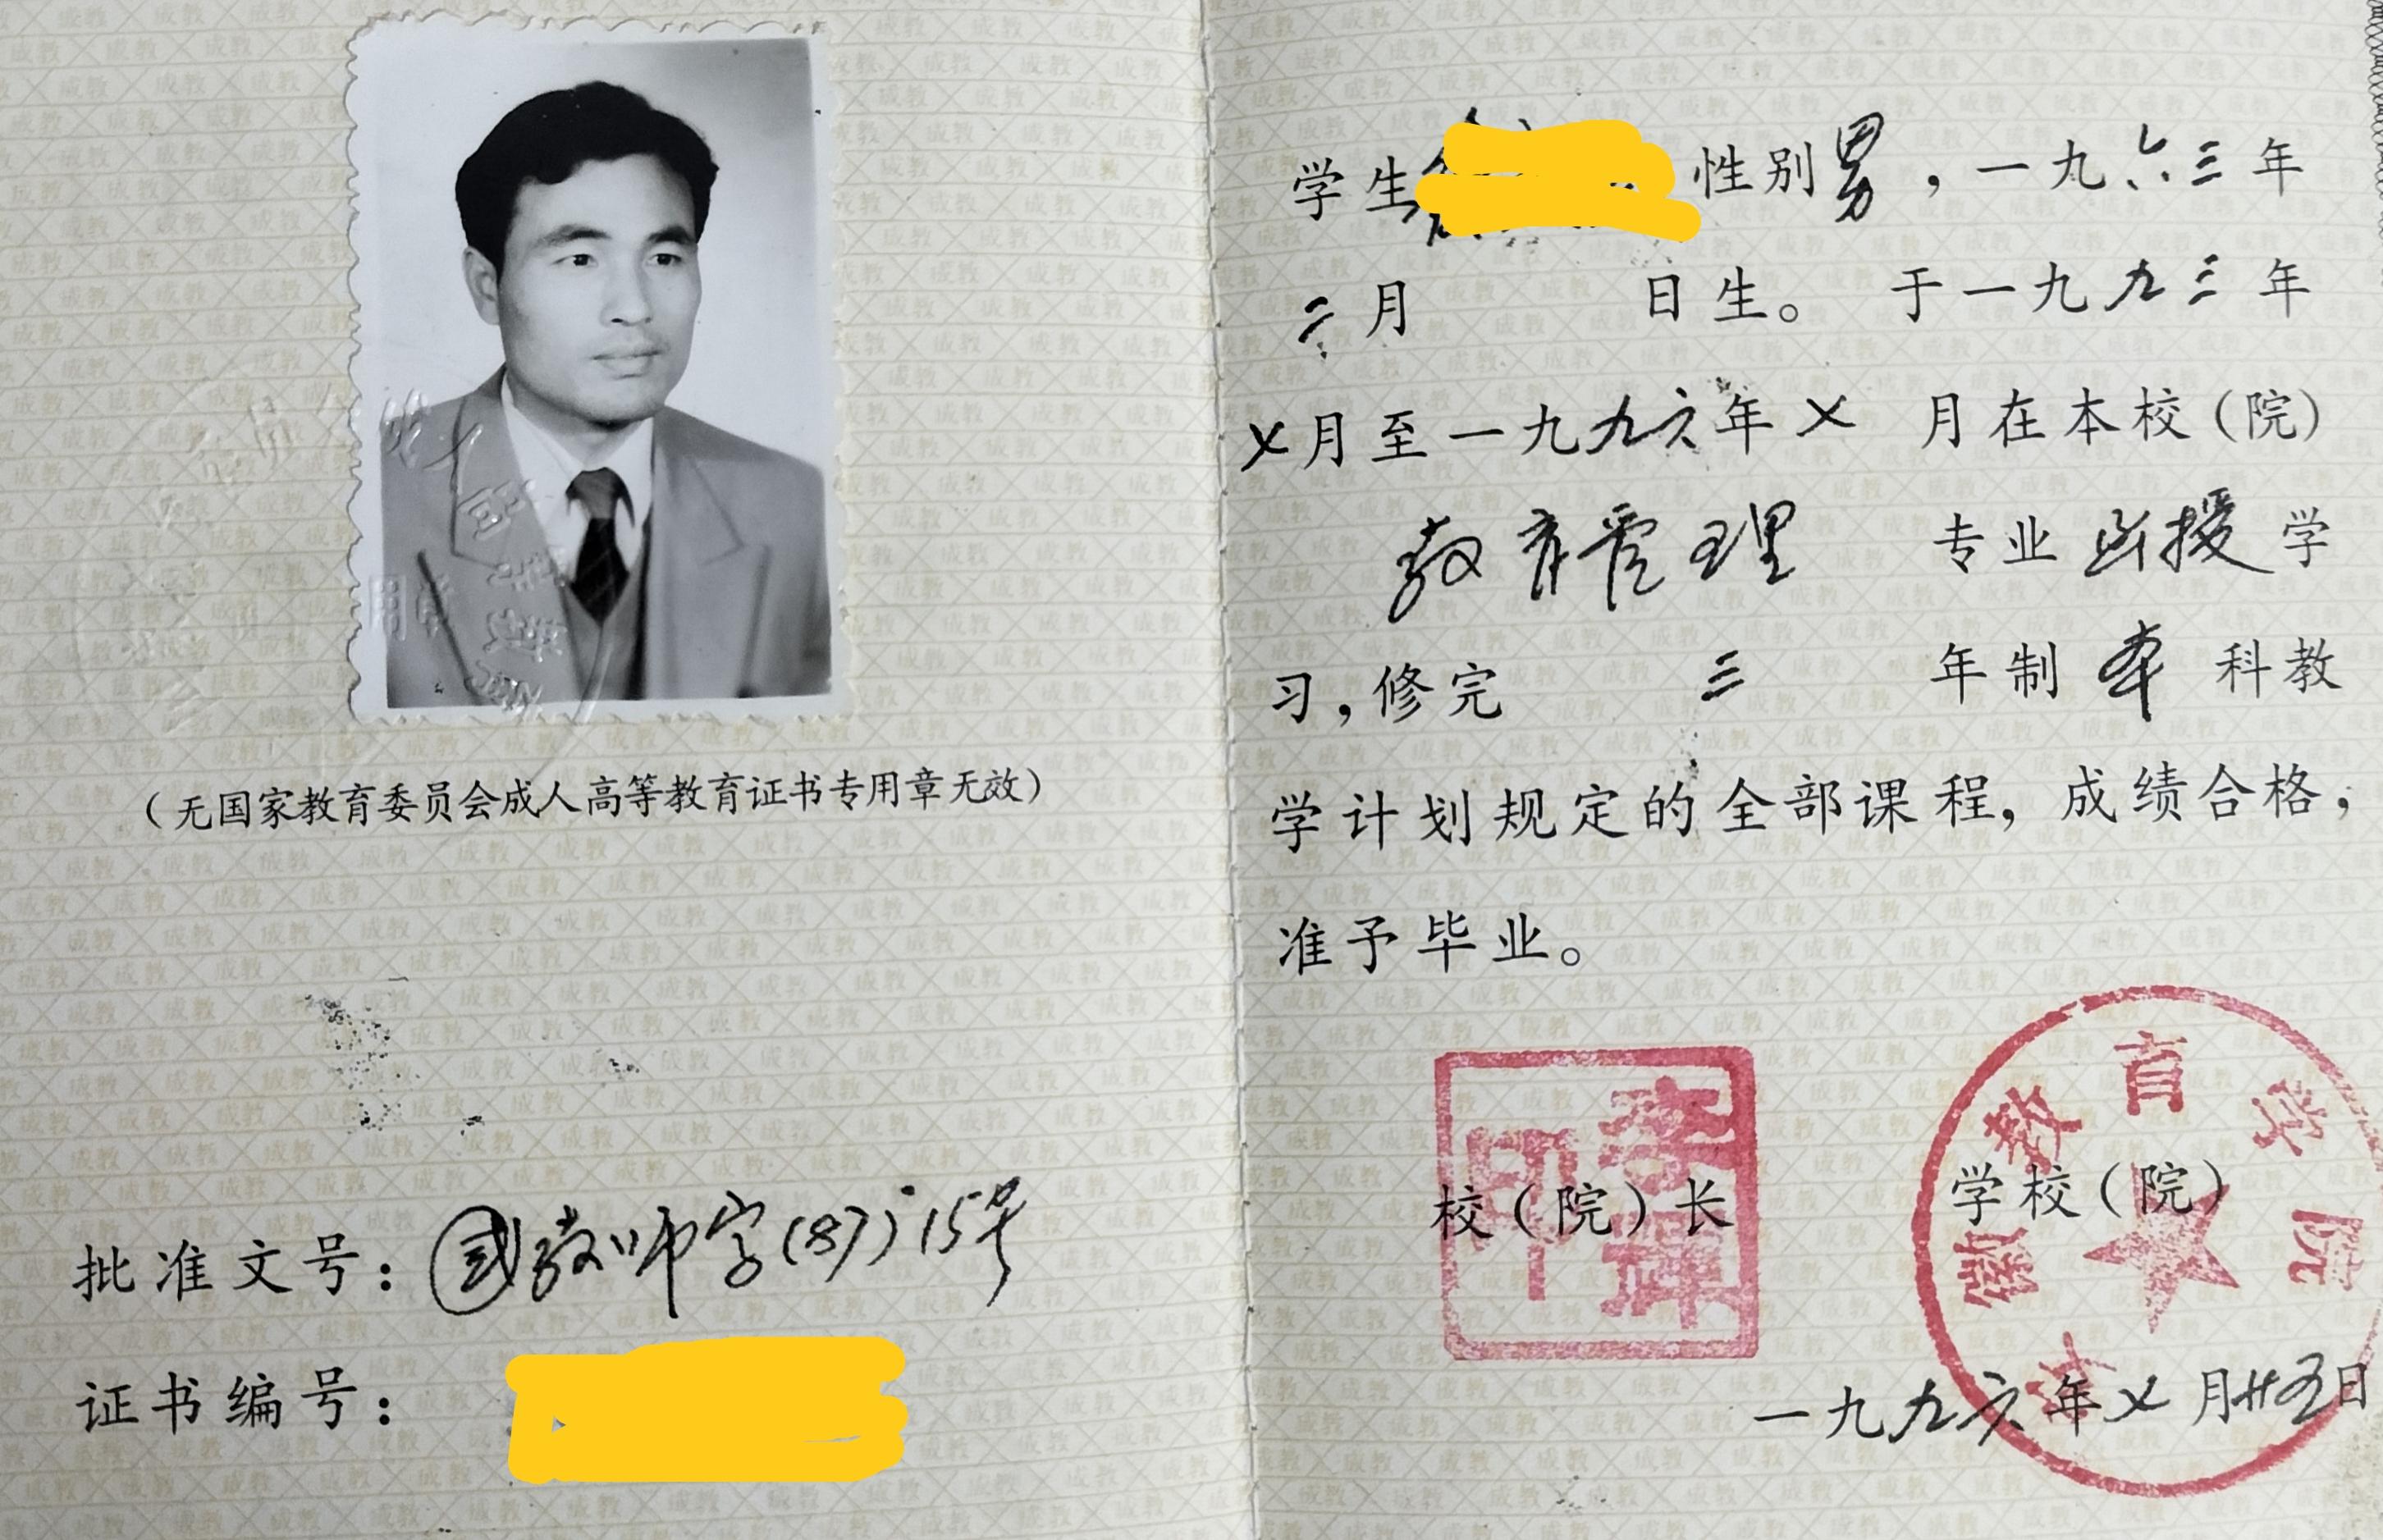 （无国家教育委员会成人高等教育证书专用章无效）
批准文号：国教师字(87)15号
证书编号：
学生 性别男，一九六三年
二月 日生。 于一九九三年
七月至一九九六年七月在本校（院）
教育管理 专业函授学
习，修完 三 年制本科教
学计划规定的全部课程，成绩合格，
准予毕业。
校（院）长
李辉
印
学校（院）
安徽教育学院
一九九六年七月廿五日